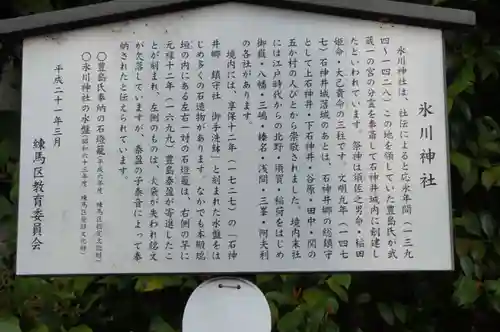 氷川神社
氷川神社は、社伝によると応永年間（一三九
四～一四二八）この地を領していた豊島氏が武
蔵一の宮の分霊を奉斎して石神井城内に創建し
たといわれています。祭神は須佐之男命・稲田
姫命・大己貴命の三社です。文明九年（一四七
七）石神井城落城のあとは、石神井郷の総鎮守
として上石神井・下石神井・谷原・田中・関の
五か村の人びとから崇敬されました。境内末社
には江戸時代からの北野・須賀・稲荷をはじめ
御嶽・八幡・三嶋・榛名・浅間・三峯・阿夫利
の各社があります。
境内には、享保十二年（一七二七）の「石神
井郷 鎮守社 御手洗鉢」と刻まれた水盤をは
じめ多くの石造物があります。なかでも本殿瑞
垣の内にある左右一対の石燈籠は、右側の竿に
元禄十二年（一六九九）豊島泰盈が寄進したこ
とが刻まれ、左側のものは、火袋が失われ銘文
が欠落していますが、泰盈の子泰音によって奉
納されたと伝えられています。
〇豊島氏奉納の石燈籠（平成六年度 練馬区指定文化財）
〇氷川神社の水盤（昭和六十三年度 練馬区登録文化財）
平成二十一年三月
練馬区教育委員会